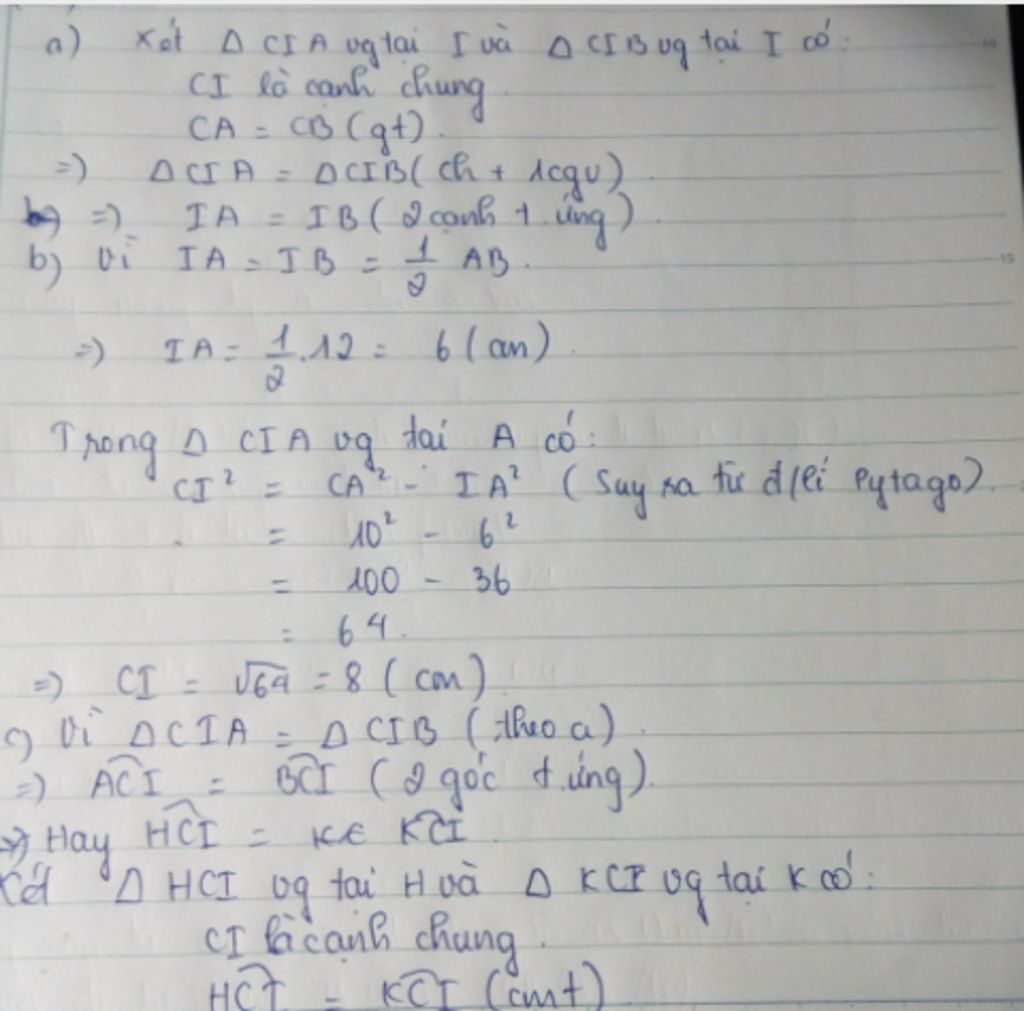 a) Xét Δ CIA vg tại I và Δ CIB vg tại I có:
CI là cạnh chung.
CA = CB (gt).
=) Δ CIA = Δ CIB (ch + 1cgv)
=) IA = IB (2 cạnh t.ứng).
b) Vì IA = IB = 1/2 AB.
=) IA = 1/2 . 12 = 6 (cm).
Trong Δ CIA vg tại A có:
CI² = CA² - IA² (Suy ra từ đ/lí Pytago).
= 10² - 6²
= 100 - 36
= 64.
=) CI = √64 = 8 (cm)
c) Vì Δ CIA = Δ CIB (theo a).
=) ACI = BCI (2 góc t.ứng).
=) Hay HCI = KCI.
Xét Δ HCI vg tại H và Δ KCI vg tại K có:
CI là cạnh chung.
HCI = KCI (cmt)